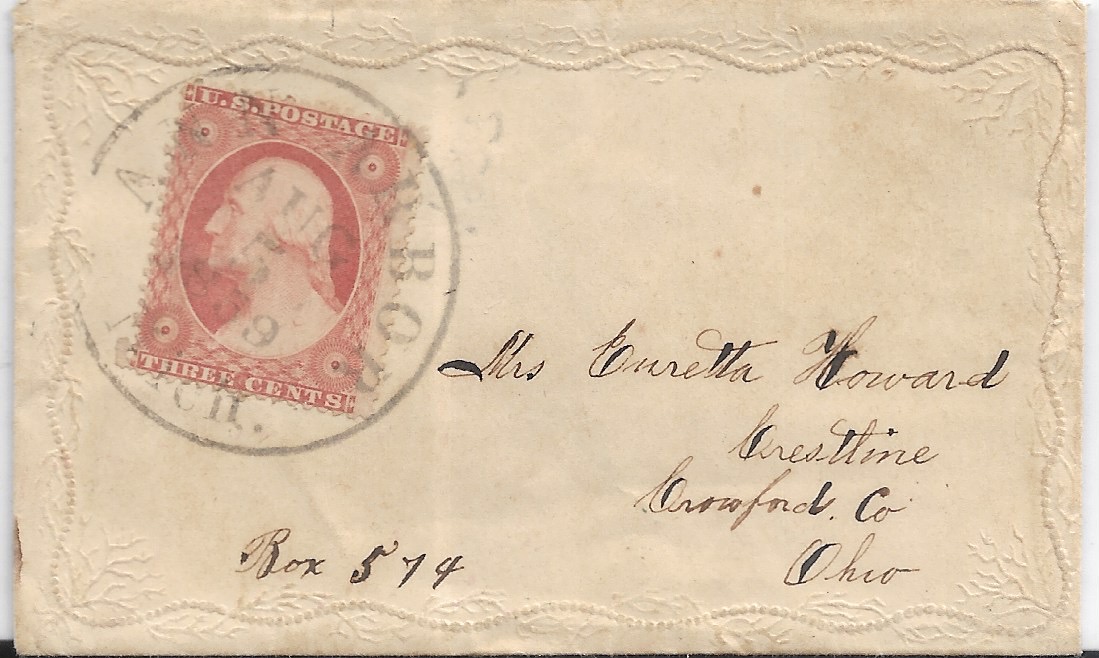 U.S. POSTAGE
THREE CENTS
ANN ARBOR
AUG
MICH.
Mrs Euretta Howard
Crestline
Crawford. Co
Ohio
Box 574